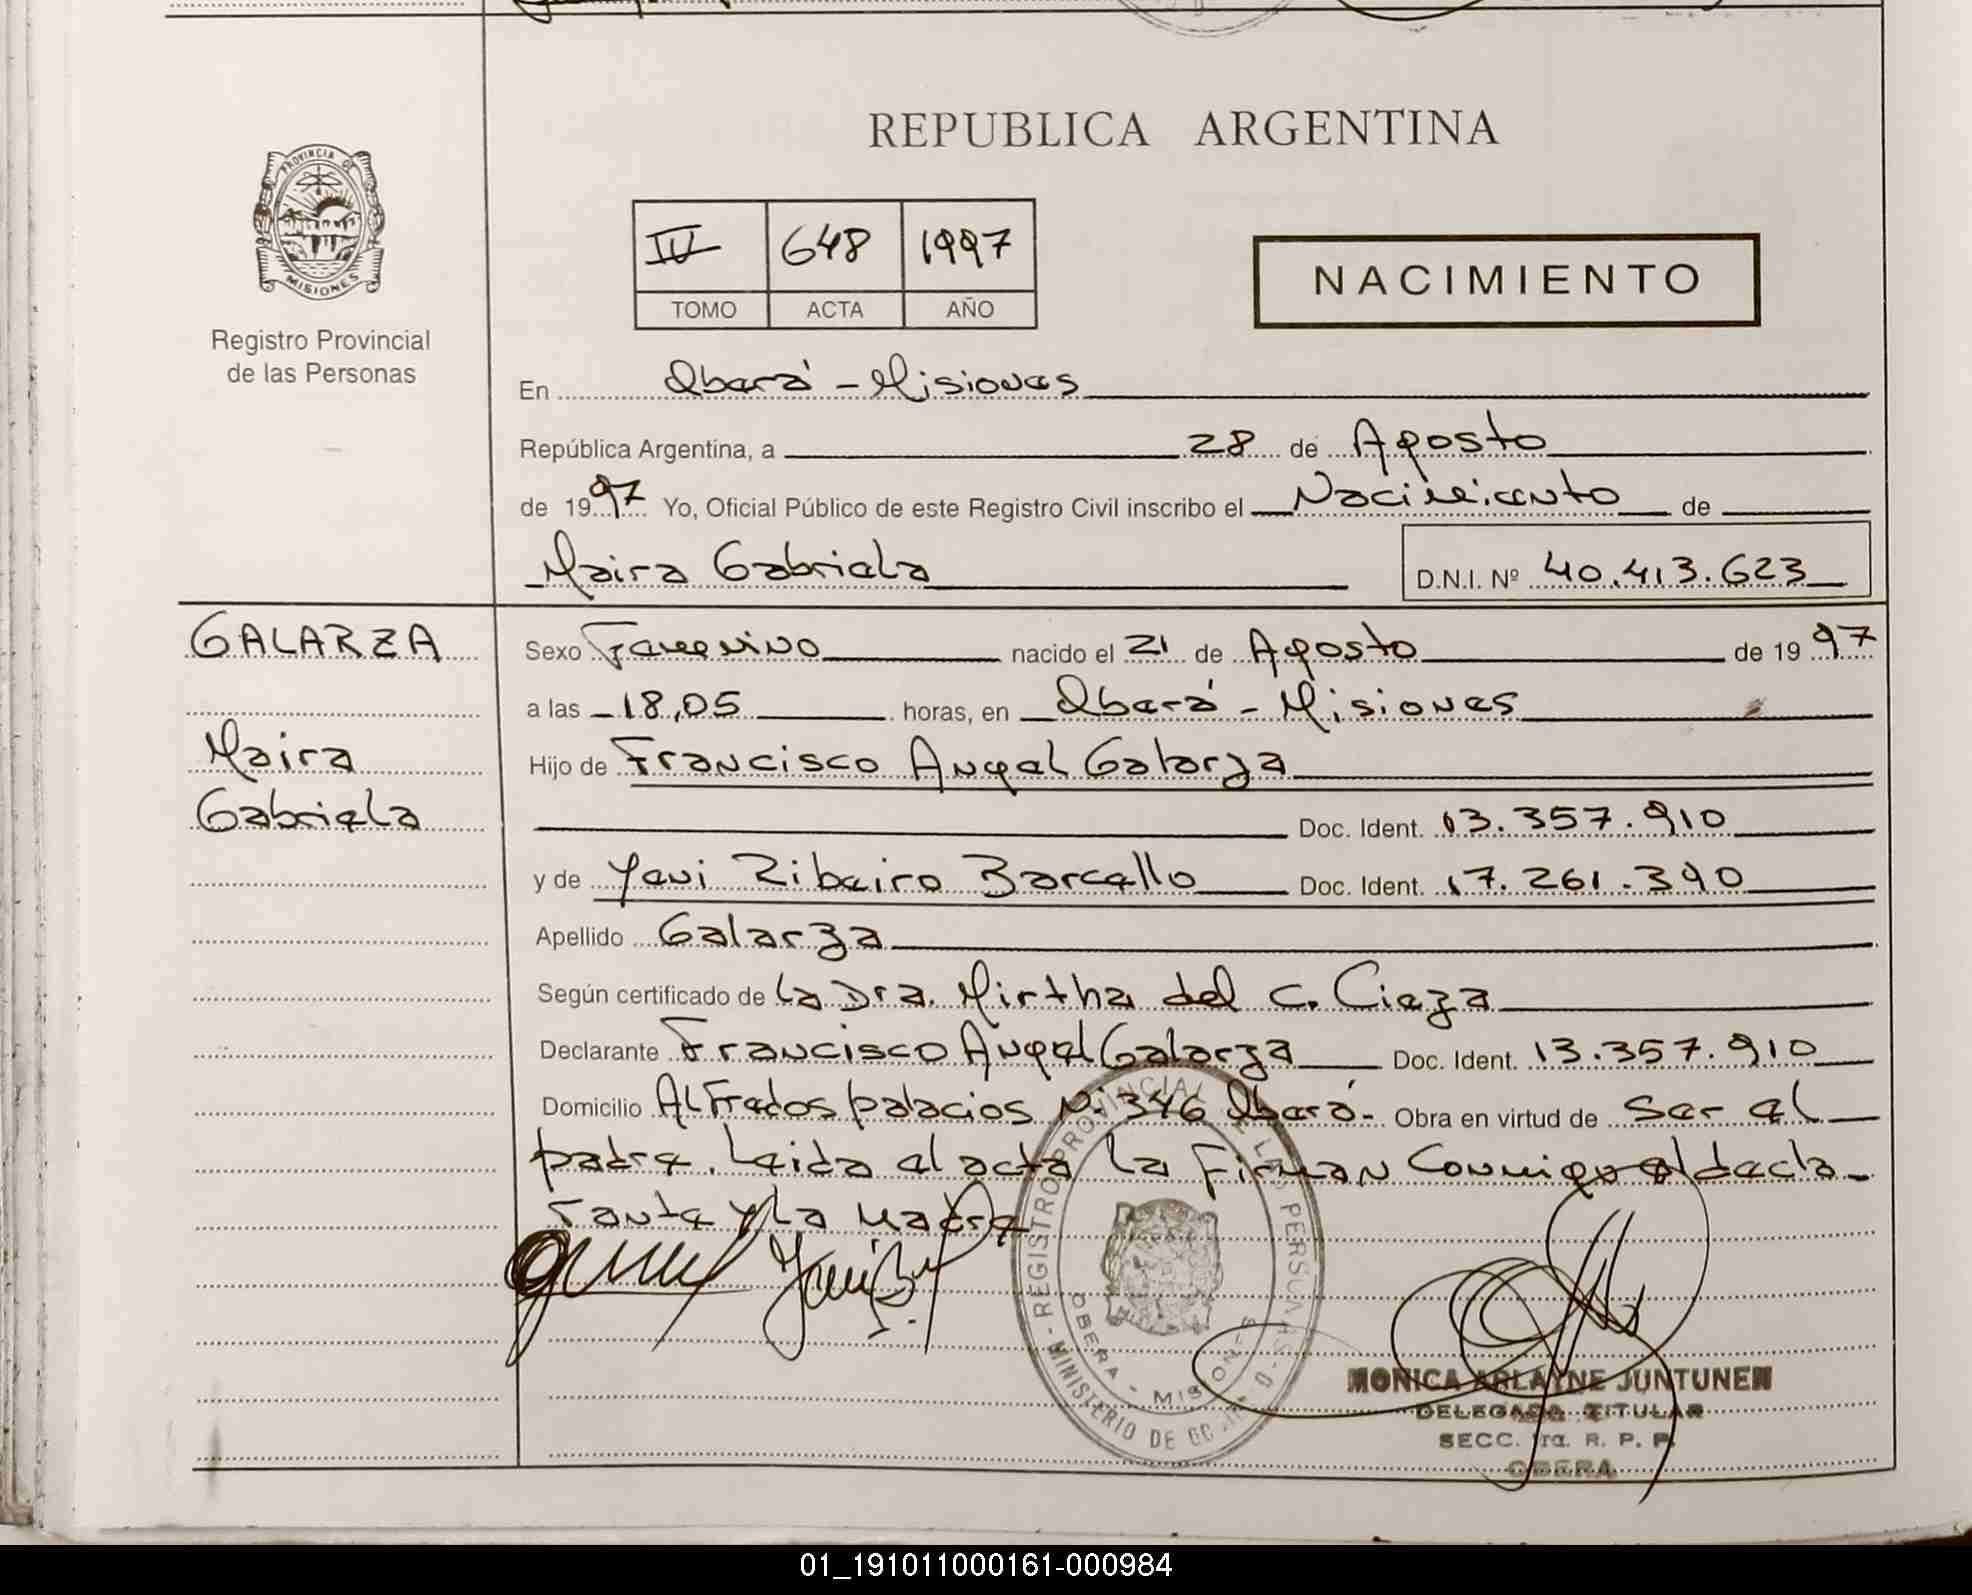 REPUBLICA ARGENTINA
PROVINCIA DE
MISIONES
Registro Provincial
de las Personas
IV 648 1997
TOMO ACTA AÑO
NACIMIENTO
En Oberá - Misiones
República Argentina, a 28 de Agosto
de 1997 Yo, Oficial Público de este Registro Civil inscribo el Nacimiento de
Maira Gabriela D.N.I. Nº 40.413.623
GALARZA
Maira
Gabriela
Sexo Femenino nacido el 21 de Agosto de 1997
a las 18,05 horas, en Oberá - Misiones
Hijo de Francisco Angel Galarza
Doc. Ident. 13.357.910
y de Yeni Ribeiro Barcello Doc. Ident. 17.261.390
Apellido Galarza
Según certificado de La Dra. Mirtha del C. Cieza
Declarante Francisco Angel Galarza Doc. Ident. 13.357.910
Domicilio Alfredos palacios Nº 346 Oberá- Obra en virtud de Ser el
padre. Leida el acta La Firman Conmigo el decla-
rante y La Madre
REGISTRO PROVINCIAL DE LAS PERSONAS - MINISTERIO DE GOBIERNO -
OBERA - MISIONES
MONICA ARLAYNE JUNTUNEN
DELEGADA TITULAR
SECC. 1ra. R. P. P.
OBERA
01_191011000161-000984